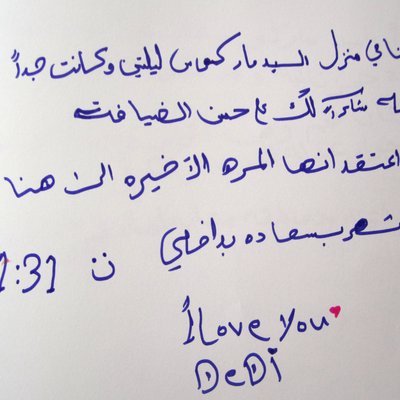 منزل السيد ماركوس ليلتي وكانت جداً
شاكرة لك على حسن الضيافة
اعتقد انها المره الآخيره الى هنا
بسعاده بداخلي
:31 ن
I Love You
DeDi